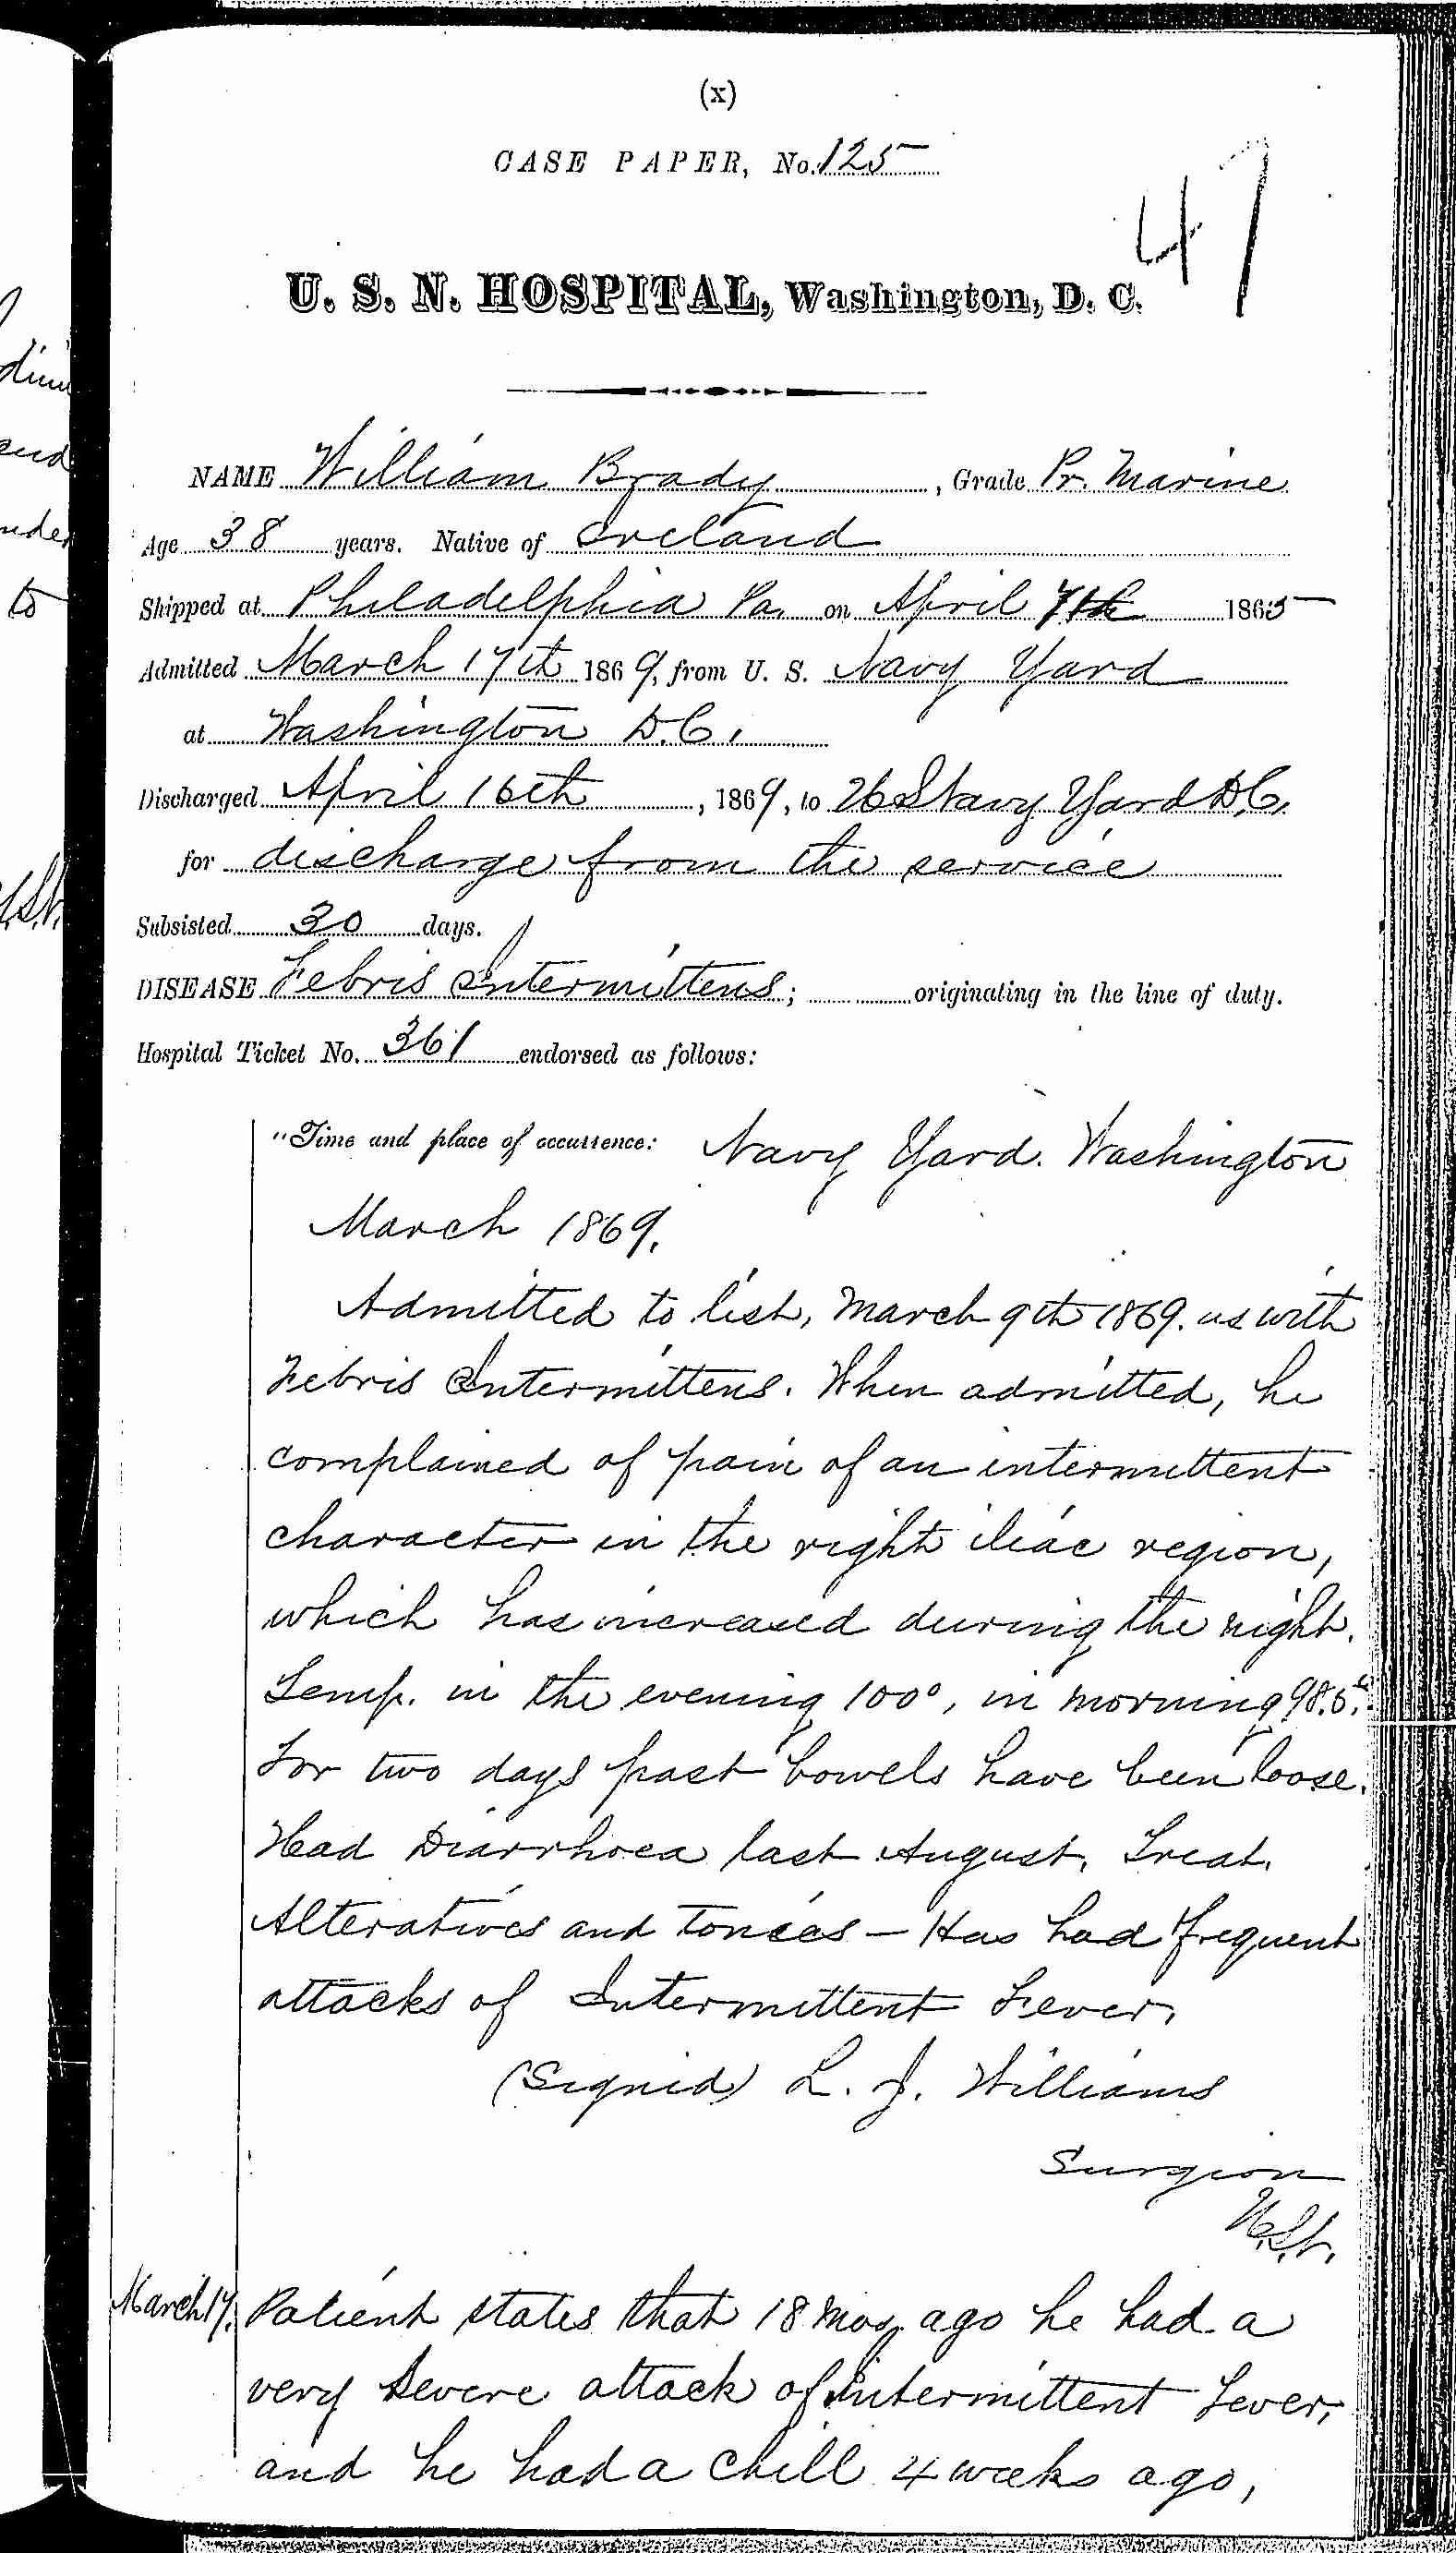 (x)
CASE PAPER, No. 125
47
U. S. N. HOSPITAL, Washington, D. C.
NAME William Brady, Grade Pr. Marine
Age 38 years. Native of Ireland
Shipped at Philadelphia Pa. on April 7th 1865
Admitted March 17th 1869, from U. S. Navy Yard
at Washington D.C.
Discharged April 16th, 1869, to U.S. Navy Yard D.C.
for discharge from the service
Subsisted 30 days.
DISEASE Febris Intermittens; originating in the line of duty.
Hospital Ticket No. 361 endorsed as follows:
"Time and place of occurrence: Navy Yard. Washington
March 1869.
Admitted to list, March 9th 1869. us with
Febris Intermittens. When admitted, he
complained of pain of an intermittent
character in the right iliac region,
which has increased during the night.
Temp. in the evening 100°, in morning 98.5.
For two days past bowels have been loose.
Had Diarrhoea last August. Treat.
Alteratives and tonics — Has had frequent
attacks of Intermittent Fever.
(Signed) L. J. Williams
Surgeon
U.S.N.
March 17. Patient states that 18 mos. ago he had a
very severe attack of Intermittent Fever,
and he had a chill 4 weeks ago,